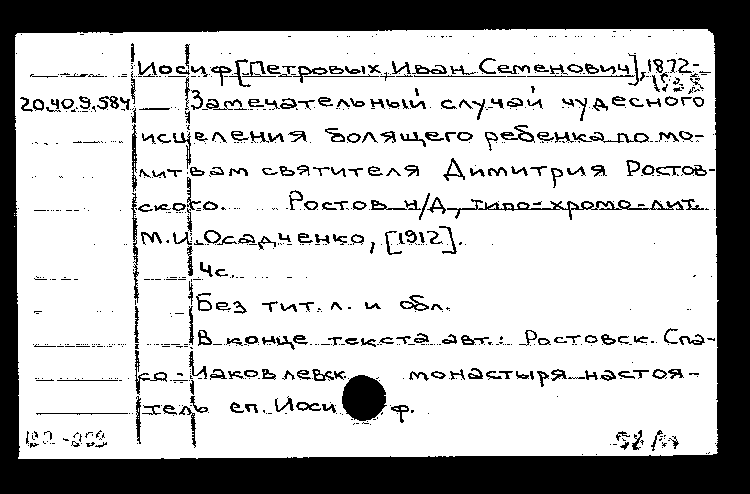 Иосиф [Петровых, Иван Семенович], 1872-
20.40.9.584 Замечательный случай чудесного
исцеления болящего ребенка по мо-
литвам святителя Димитрия Ростов-
ского. Ростов н/Д., типо-хромо-лит.
М.И. Осадченко, [1912].
4с.
Без тит. л. и обл.
В конце текста авт.: Ростовск. Спа-
со-Иаковлевск. монастыря настоя-
тель еп. Иосиф.